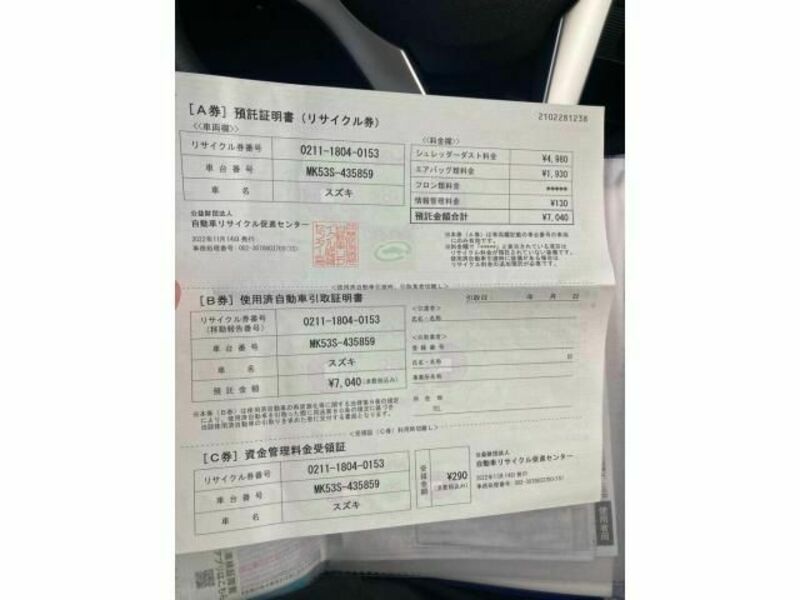 2102281238
[A券] 預託証明書 (リサイクル券)
<<車両欄>>
リサイクル券番号 0211-1804-0153
車台番号 MK53S-435859
車名 スズキ
公益財団法人
自動車リサイクル促進センター
2022年11月14日 発行
<<料金欄>>
シュレッダーダスト料金 ¥4,980
エアバッグ類料金 ¥1,930
フロン類料金 *****
情報管理料金 ¥130
預託金額合計 ¥7,040
[B券] 使用済自動車引取証明書
リサイクル券番号 0211-1804-0153
(移動報告番号)
車台番号 MK53S-435859
車名 スズキ
預託金額 ¥7,040 (消費税込み)
引取日 年 月 日
氏名・名称
登録番号
氏名・名称 印
事業所名称
所在地
TEL
[C券] 資金管理料金受領証
リサイクル券番号 0211-1804-0153
車台番号 MK53S-435859
車名 スズキ
受領金額 ¥290
(消費税込み)
公益財団法人
自動車リサイクル促進センター
2022年11月14日 発行
使用者用